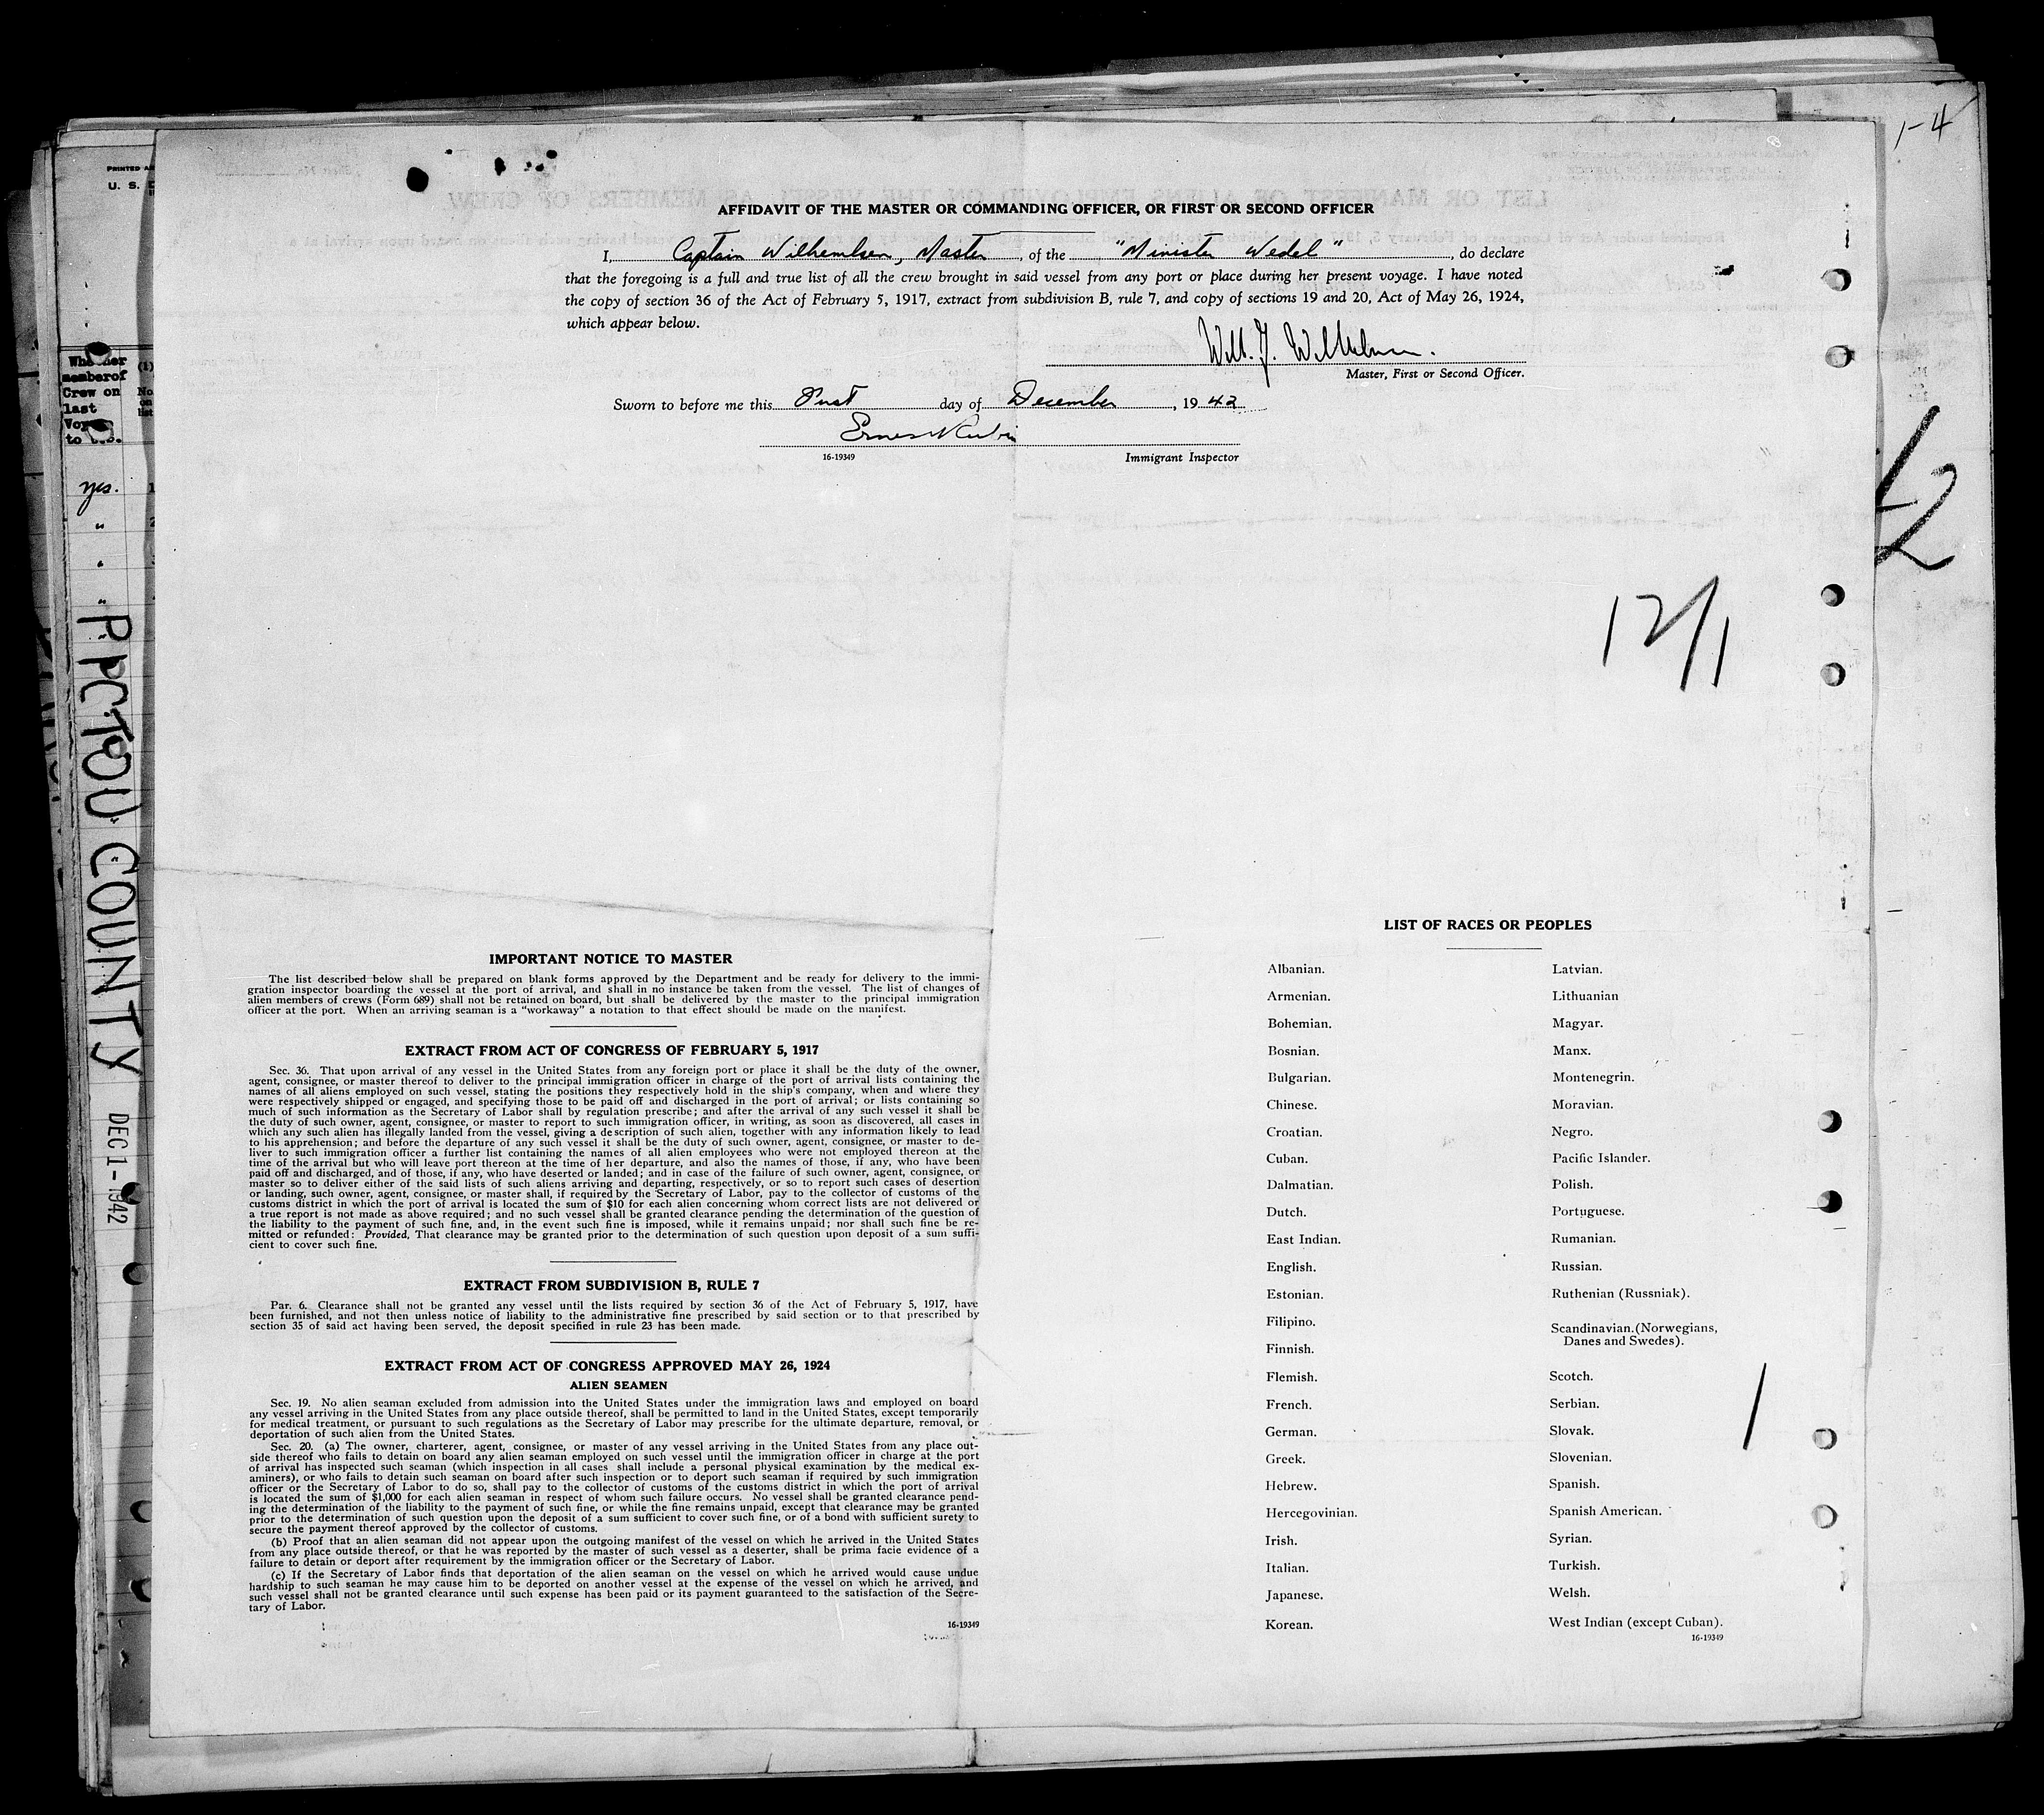 1-4
PRINTED
U. S.
AFFIDAVIT OF THE MASTER OR COMMANDING OFFICER, OR FIRST OR SECOND OFFICER
I, Captain Wilhemlsen, Master, of the "Minister Wedel", do declare
that the foregoing is a full and true list of all the crew brought in said vessel from any port or place during her present voyage. I have noted
the copy of section 36 of the Act of February 5, 1917, extract from subdivision B, rule 7, and copy of sections 19 and 20, Act of May 26, 1924,
which appear below.
Master, First or Second Officer.
Sworn to before me this day of December, 1942
16-19349 Immigrant Inspector
Whether
member of
Crew on
last
to
(1)
No.
on
list
yes.
12
12/1
PPCTOU COUNTY
DEC 1-1942
IMPORTANT NOTICE TO MASTER
The list described below shall be prepared on blank forms approved by the Department and be ready for delivery to the immi-
gration inspector boarding the vessel at the port of arrival, and shall in no instance be taken from the vessel. The list of changes of
alien members of crews (Form 689) shall not be retained on board, but shall be delivered by the master to the principal immigration
officer at the port. When an arriving seaman is a "workaway" a notation to that effect should be made on the manifest.
EXTRACT FROM ACT OF CONGRESS OF FEBRUARY 5, 1917
Sec. 36. That upon arrival of any vessel in the United States from any foreign port or place it shall be the duty of the owner,
agent, consignee, or master thereof to deliver to the principal immigration officer in charge of the port of arrival lists containing the
names of all aliens employed on such vessel, stating the positions they respectively hold in the ship's company, when and where they
were respectively shipped or engaged, and specifying those to be paid off and discharged in the port of arrival; or lists containing so
much of such information as the Secretary of Labor shall by regulation prescribe; and after the arrival of any such vessel it shall be
the duty of such owner, agent, consignee, or master to report to such immigration officer, in writing, as soon as discovered, all cases in
which any such alien has illegally landed from the vessel, giving a description of such alien, together with any information likely to lead
to his apprehension; and before the departure of any such vessel it shall be the duty of such owner, agent, consignee, or master to de-
liver to such immigration officer a further list containing the names of all alien employees who were not employed thereon at the
time of the arrival but who will leave port thereon at the time of her departure, and also the names of those, if any, who have been
paid off and discharged, and of those, if any, who have deserted or landed; and in case of the failure of such owner, agent, consignee, or
master so to deliver either of the said lists of such aliens arriving and departing, respectively, or so to report such cases of desertion
or landing, such owner, agent, consignee, or master shall, if required by the Secretary of Labor, pay to the collector of customs of the
customs district in which the port of arrival is located the sum of $10 for each alien concerning whom correct lists are not delivered or
a true report is not made as above required; and no such vessel shall be granted clearance pending the determination of the question of
the liability to the payment of such fine, and, in the event such fine is imposed, while it remains unpaid; nor shall such fine be re-
mitted or refunded: Provided, That clearance may be granted prior to the determination of such question upon deposit of a sum suffi-
cient to cover such fine.
EXTRACT FROM SUBDIVISION B, RULE 7
Par. 6. Clearance shall not be granted any vessel until the lists required by section 36 of the Act of February 5, 1917, have
been furnished, and not then unless notice of liability to the administrative fine prescribed by said section or to that prescribed by
section 35 of said act having been served, the deposit specified in rule 23 has been made.
EXTRACT FROM ACT OF CONGRESS APPROVED MAY 26, 1924
ALIEN SEAMEN
Sec. 19. No alien seaman excluded from admission into the United States under the immigration laws and employed on board
any vessel arriving in the United States from any place outside thereof, shall be permitted to land in the United States, except temporarily
for medical treatment, or pursuant to such regulations as the Secretary of Labor may prescribe for the ultimate departure, removal, or
deportation of such alien from the United States.
Sec. 20. (a) The owner, charterer, agent, consignee, or master of any vessel arriving in the United States from any place out-
side thereof who fails to detain on board any alien seaman employed on such vessel until the immigration officer in charge at the port
of arrival has inspected such seaman (which inspection in all cases shall include a personal physical examination by the medical ex-
aminers), or who fails to detain such seaman on board after such inspection or to deport such seaman if required by such immigration
officer or the Secretary of Labor to do so, shall pay to the collector of customs of the customs district in which the port of arrival
is located the sum of $1,000 for each alien seaman in respect of whom such failure occurs. No vessel shall be granted clearance pend-
ing the determination of the liability to the payment of such fine, or while the fine remains unpaid, except that clearance may be granted
prior to the determination of such question upon the deposit of a sum sufficient to cover such fine, or of a bond with sufficient surety to
secure the payment thereof approved by the collector of customs.
(b) Proof that an alien seaman did not appear upon the outgoing manifest of the vessel on which he arrived in the United States
from any place outside thereof, or that he was reported by the master of such vessel as a deserter, shall be prima facie evidence of a
failure to detain or deport after requirement by the immigration officer or the Secretary of Labor.
(c) If the Secretary of Labor finds that deportation of the alien seaman on the vessel on which he arrived would cause undue
hardship to such seaman he may cause him to be deported on another vessel at the expense of the vessel on which he arrived, and
such vessel shall not be granted clearance until such expense has been paid or its payment guaranteed to the satisfaction of the Secre-
tary of Labor.
16-19349
LIST OF RACES OR PEOPLES
Albanian.
Armenian.
Bohemian.
Bosnian.
Bulgarian.
Chinese.
Croatian.
Cuban.
Dalmatian.
Dutch.
East Indian.
English.
Estonian.
Filipino.
Finnish.
Flemish.
French.
German.
Greek.
Hebrew.
Hercegovinian.
Irish.
Italian.
Japanese.
Korean.
Latvian.
Lithuanian
Magyar.
Manx.
Montenegrin.
Moravian.
Negro.
Pacific Islander.
Polish.
Portuguese.
Rumanian.
Russian.
Ruthenian (Russniak).
Scandinavian.(Norwegians,
Danes and Swedes).
Scotch.
Serbian.
Slovak.
Slovenian.
Spanish.
Spanish American.
Syrian.
Turkish.
Welsh.
West Indian (except Cuban).
16-19349